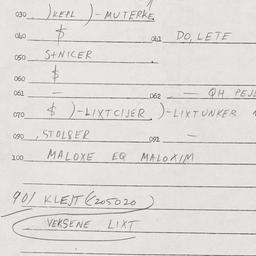 030 )KEPL )-MUTERKE
040 $ 041 DO, LETE
050 S+NICER
060 $
061 — 062 — QH PEJL
070 $ )-LIXTCIJER. )-LIXTUNKER
090 , STOLBER 091 —
100 MALOXE EQ MALOXIM
901 KLEJT (205020)
VERSENE LIXT